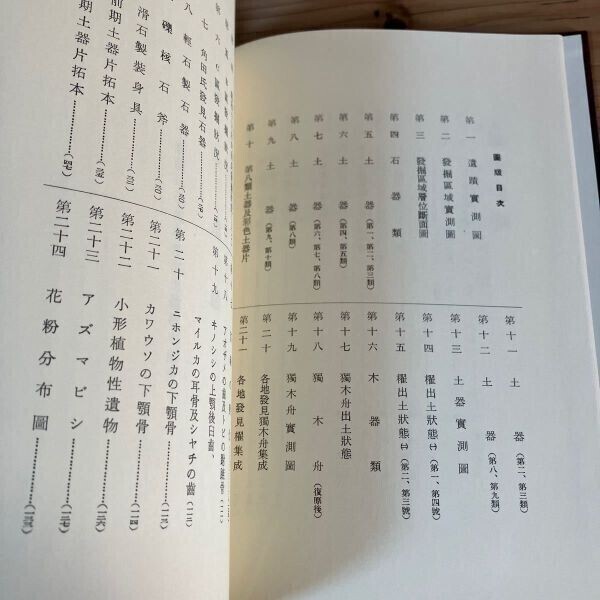 圖版目次
第一 遺蹟實測圖
第二 發掘區域實測圖
第三 發掘區域層位斷面圖
第四 石器類
第五 土器(第一、第二、第三類)
第六 土器(第四、第五類)
第七 土器(第六、第七、第八類)
第八 土器(第八類)
第九 土器(第九、第十類)
第十 第八類土器及彩色土器片
第十一 土器(第二、第三類)
第十二 土器(第八、第九類)
第十三 土器實測圖
第十四 櫂出土狀態㈠(第一、第四號)
第十五 櫂出土狀態㈡(第二、第三號)
第十六 木器類
第十七 獨木舟出土狀態
第十八 獨木舟(復原後)
第十九 獨木舟實測圖
第二十 各地發見獨木舟集成
第二十一 各地發見櫂集成
七 角田氏發見石器
八 輕石製石器
礫核石斧
滑石製裝身具
前期土器片拓本
期土器片拓本
第十八
第十九 キノシシの上顎後臼齒、
マイルカの耳骨及シャチの齒(一二二)
第二十 ニホンジカの下顎骨(一二三)
第二十一 カワウソの下顎骨(一二四)
第二十二 小形植物性遺物(一二六)
第二十三 アズマビシ(一二七)
第二十四 花粉分布圖(一三六)